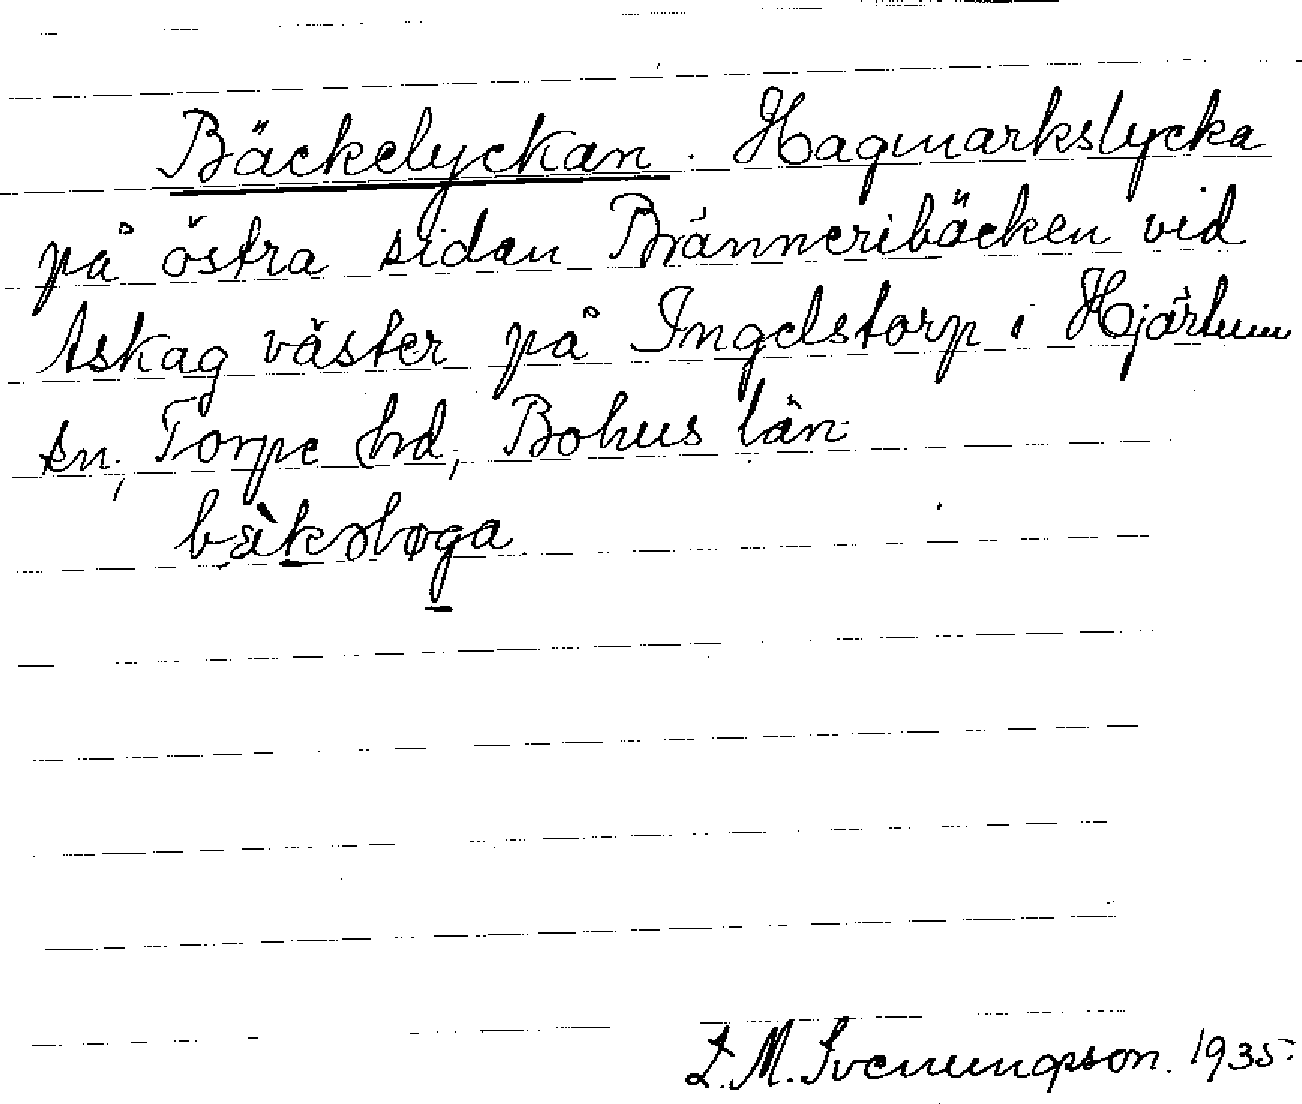 Bäckelyckan. Hagmarkslycka
på östra sidan Bränneribäcken vid
Askag väster på Ingelstorp i Hjärtum
sn, Torpe hd, Bohus län.
L. M. Svenungsson. 1935.